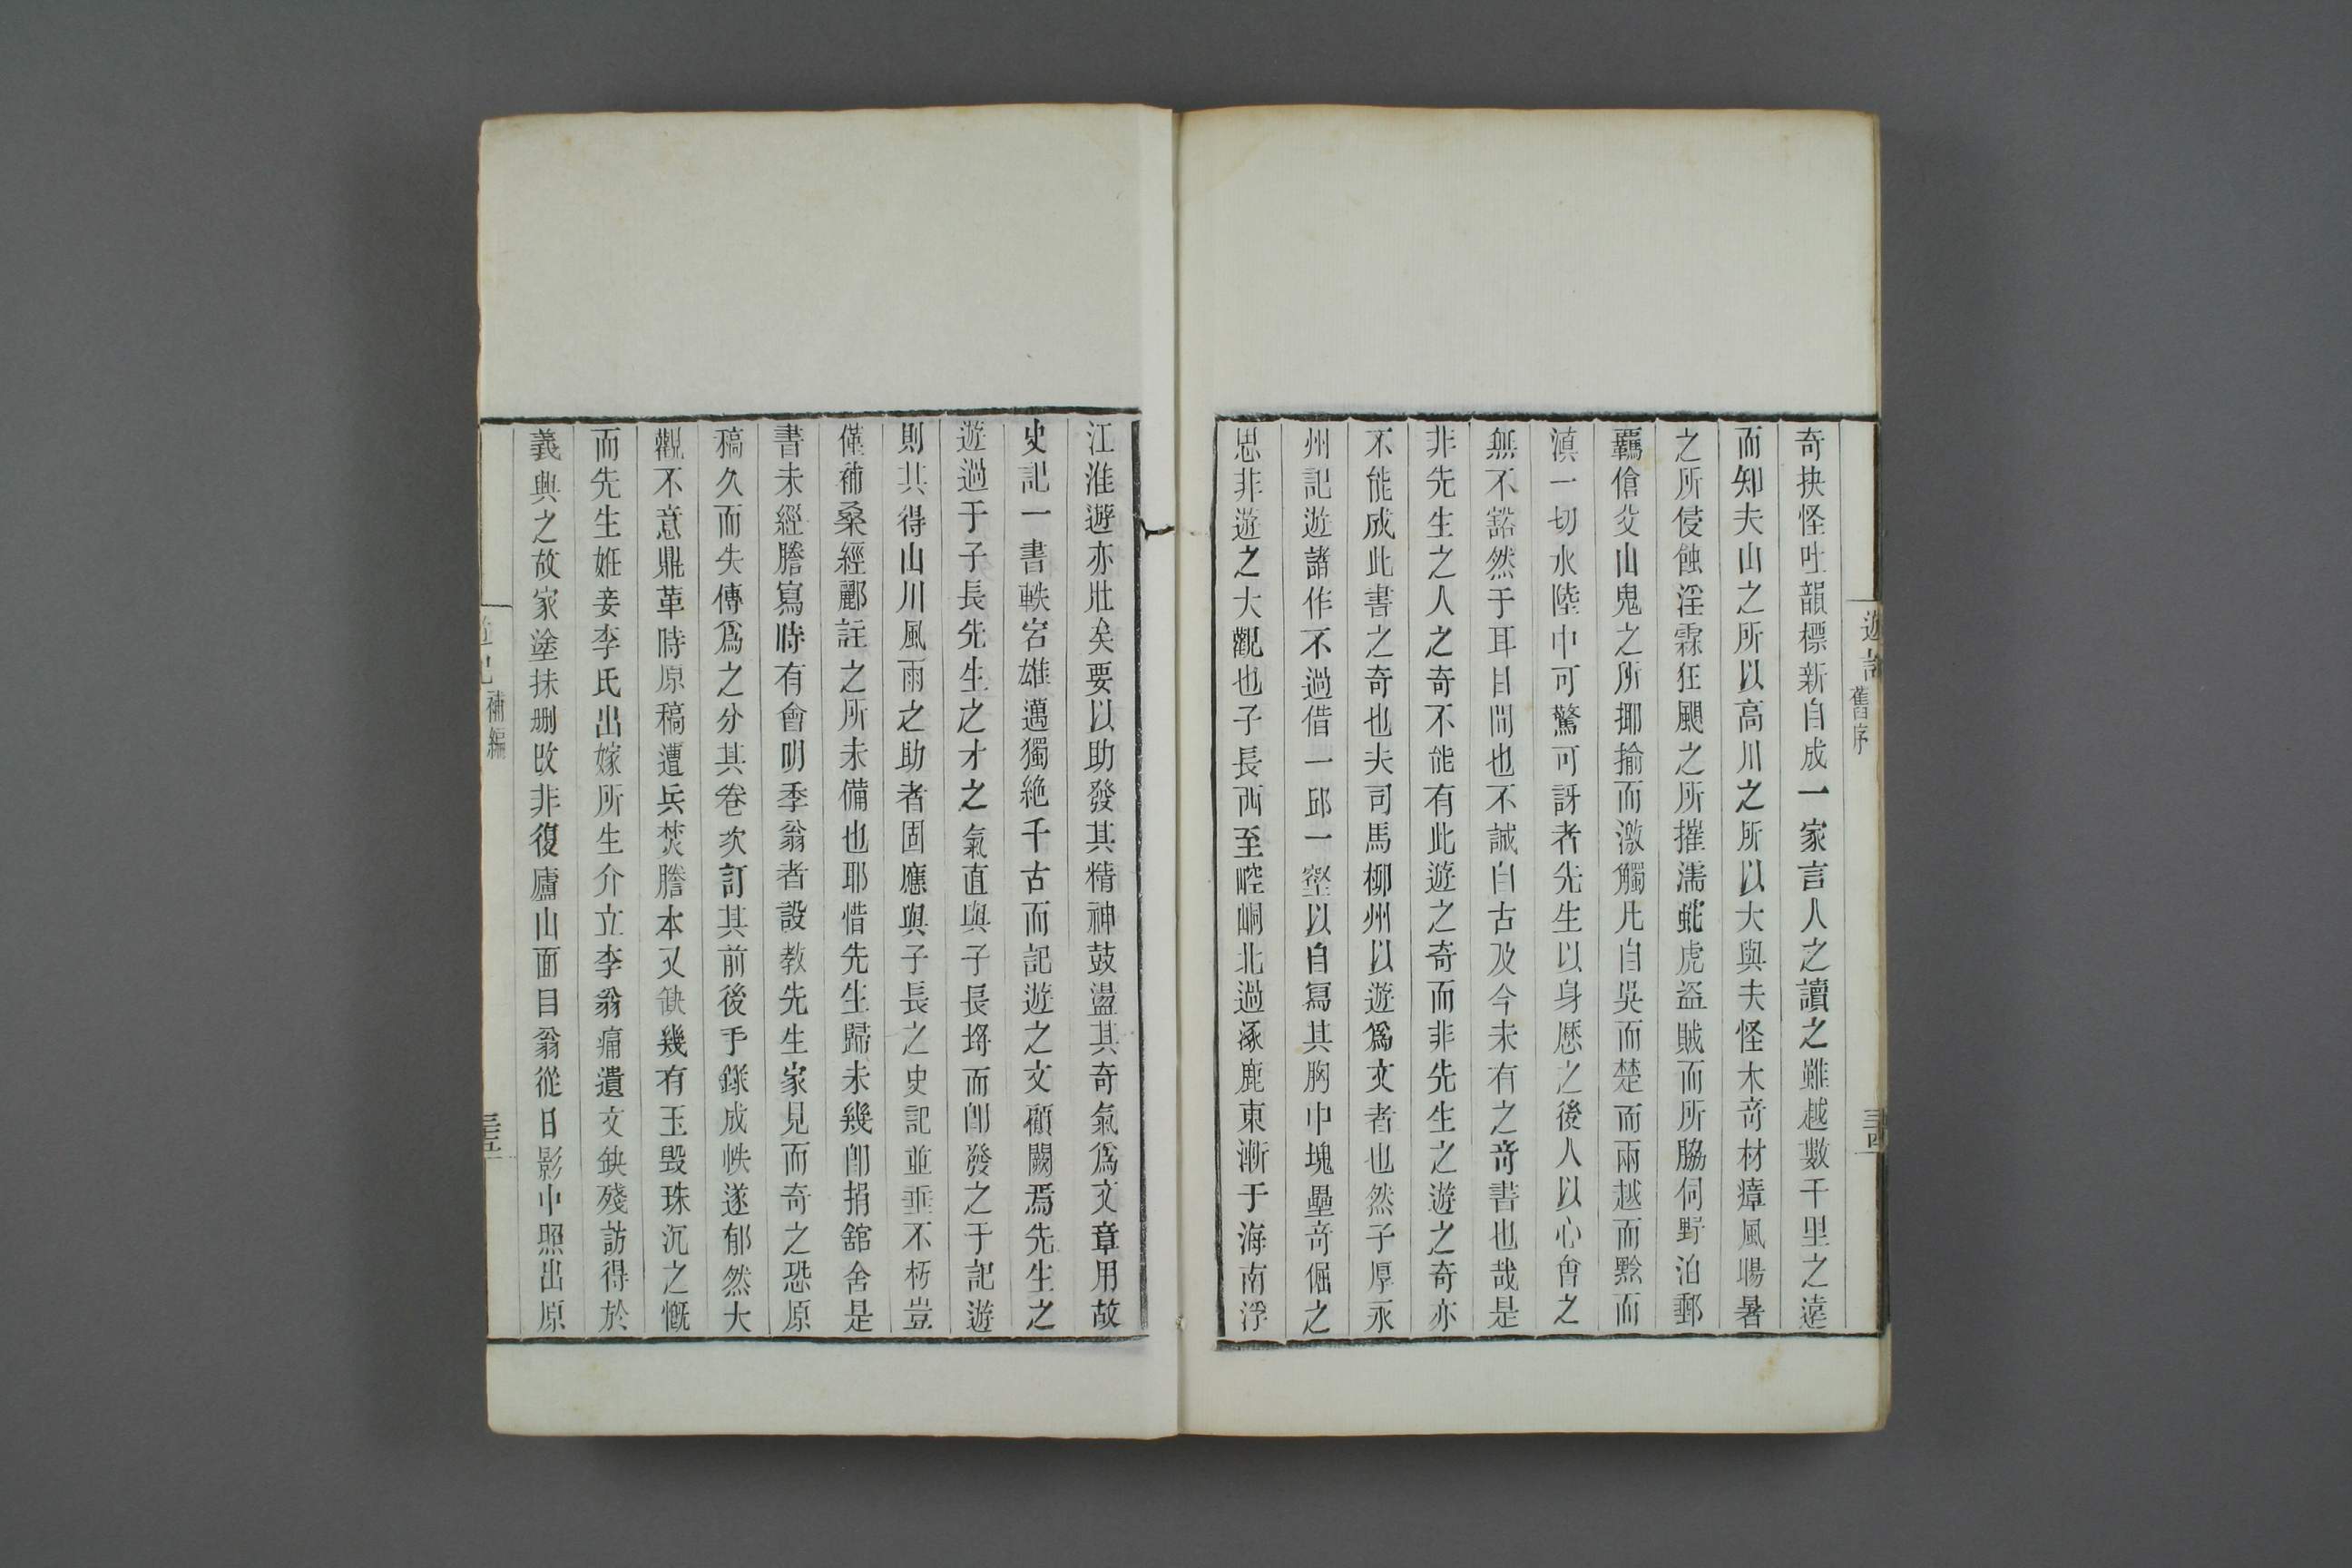 遊記 舊序 三四
奇抉怪吐韻標新自成一家言人之讀之雖越數千里之遠
而知夫山之所以高川之所以大與夫怪木奇材瘴風暘暑
之所侵蝕淫霖狂颶之所摧濡虵虎盜賊而所脇伺野泊郵
羈傖父山鬼之所揶揄而激觸凡自吳而楚而兩越而黔而
滇一切水陸中可驚可訝者先生以身歴之後人以心會之
無不豁然于耳目間也不誠自古及今未有之奇書也哉是
非先生之人之奇不能有此遊之奇而非先生之遊之奇亦
不能成此書之奇也夫司馬柳州以遊爲文者也然子厚永
州記遊諸作不過借一邱一壑以自寫其胸中塊壘奇倔之
思非遊之大觀也子長西至崆峒北過涿鹿東漸于海南浮
江淮遊亦壯矣要以助發其精神鼓盪其奇氣爲文章用故
史記一書軼宕雄邁獨絶千古而記遊之文顧闕焉先生之
遊過于子長先生之才之氣直與子長埒而卽發之于記遊
則其得山川風雨之助者固應與子長之史記並垂不朽豈
僅補桑經酈註之所未備也耶惜先生歸未幾卽捐舘舍是
書未經謄寫時有會明季翁者設教先生家見而奇之恐原
稿久而失傳爲之分其卷次訂其前後手錄成帙遂郁然大
觀不意鼎革時原稿遭兵焚謄本又缺幾有玉毀珠沉之慨
而先生姙妾李氏出嫁所生介立李翁痛遺文缺殘訪得於
義興之故家塗抹刪改非復廬山面目翁從日影中照出原
遊記 補編 三五